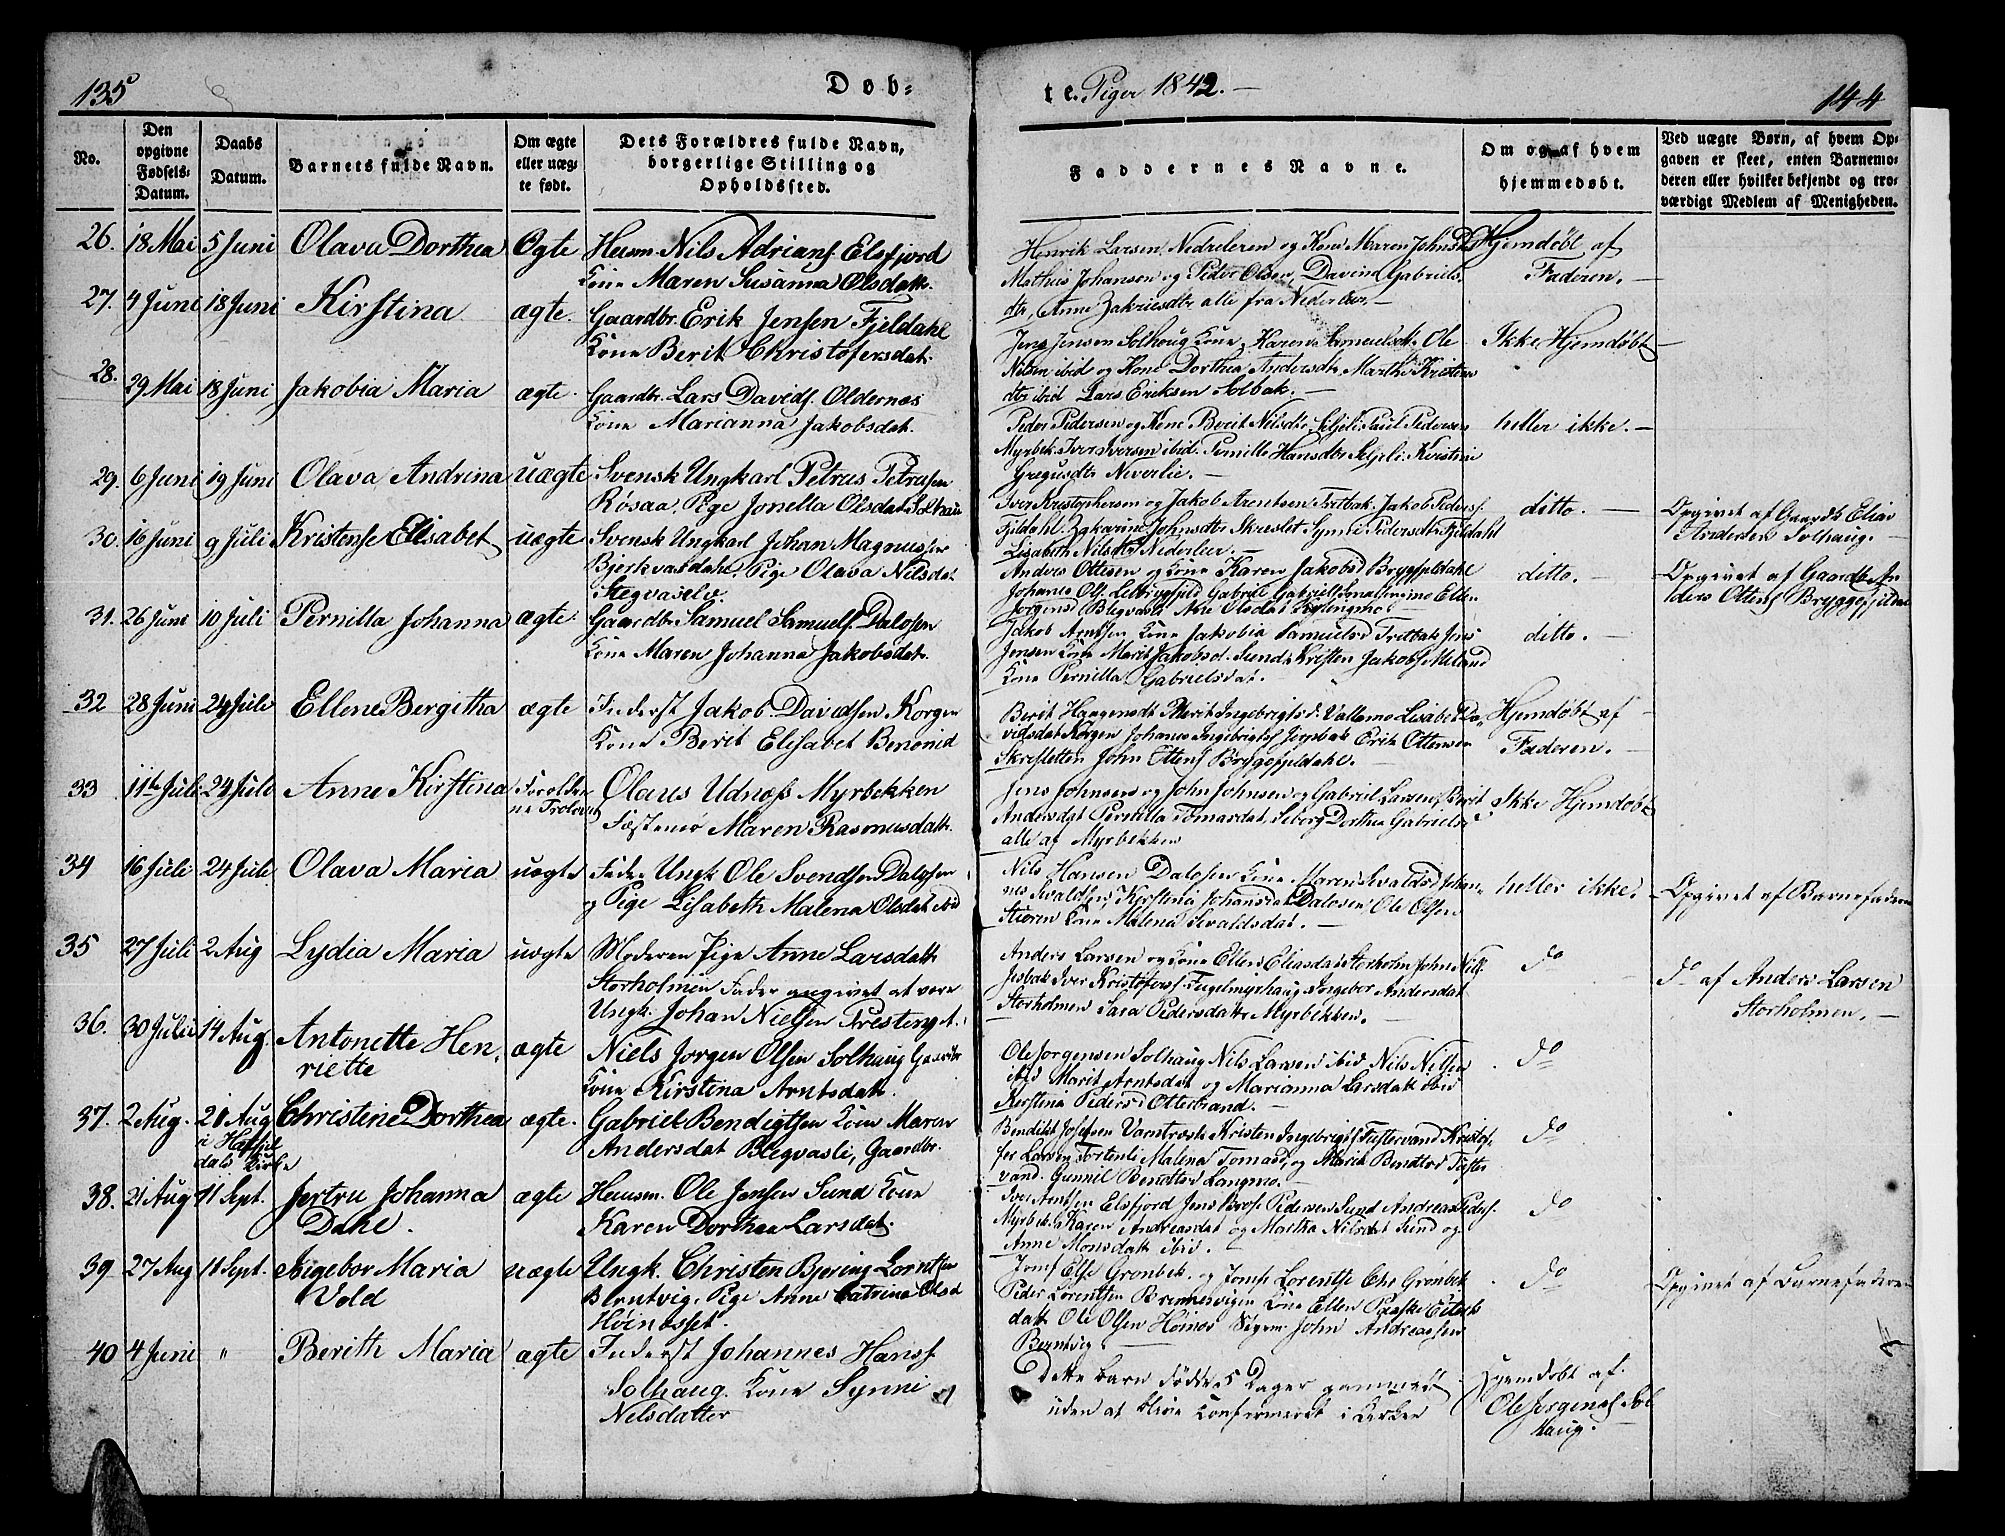 135
Døb-
te Piger 1842.
144
No.
Den opgivne Fødsels-Datum.
Daabs Datum.
Barnets fulde Navn.
Om ægte eller uæg-te født.
Dets Forældres fulde Navn, borgerlige Stilling og Opholdssted.
Faddernes Navne.
Om og af hvem hjemmedøbt.
Ved uægte Børn, af hvem Op-gaven er skeet, enten Barnemo-deren eller hvilket bekjendt og tro-værdigt Medlem af Menigheden.
26. 18 Mai 5 Juni Olava Dorthea Ægte Huusm. Nils Adrians. Elsfjord
Kone Maren Susanna Olsdatt.
Henrik Larsen Nederleren og Kone Maren Johnsd.
Mathis Johansen og Peder Olsen, Davina Gabriels-
dtr, Anne Zakriesdtr alle fra Nederleer.
Hjemdøbt af
Faderen.
27. 4 Juni 18 Juni Kirstina ægte. Gaardbr. Erik Jensen Fjeldahl
Kone Berit Christofersdat.
Jens Jensen Solhoug Kone Karen Samuelsdt. Ole
Nilsen ibid og Kone Dorthea Andersdt. Marthe Kristens
dtr ibid Lars Eriksen Solbak.
Ikke Hjemdøbt
28. 29 Mai 18 Juni Jakobia Maria ægte. Gaardbr. Lars Davids. Oldernæs
Kone Marianna Jakobsdat.
Peder Pedersen og Kone Berit Nilsdtr Seljeli Paul Pedersen
Myrbek Iver Iversen ibid. Pernille Hansdtr Seljeli Kristine
Gregusdtr Neverlie.
heller ikke.
29. 6 Juni 19 Juni Olava Andrina uægte Svensk Ungkarl Petrus Petrusen
Røsaa, Pige Jonella Olsdat Solhau
Iver Kristophersen og Jakob Arentsen Fretbak Jakob Peders.
Fjeldahl. Zakarine Johnsdtr Skreslet Synne Pedersdtr Fjeldahl
Lisabeth Nilsdtr Nederleer.
ditto.
Opgivet af Gaardb. Elias
Andersen Solhaug.
30. 16 Juni 9 Juli Kristense Elisabet uægte Svensk Ungkarl Johan Magnussen
Bjerkvasdahl. Pige Olava Nilsdat
Stegvaselv.
Anders Ottesen og Kone Karen Jakobsd Bryggfjeldahl
Johanes Ols. Gabriel Gabriels Ellen
Jorgensd Blegvasli Ane Olsdat
ditto.
Opgivet af Gaardb. An-
ders Ottens Bryggefjeldal
31. 26 Juni 10 Juli Pernilla Johanna ægte Gaardbr. Samuel Samuels. Dalosen
Kone Maren Johanna Jakobsdat.
Jakob Arntsen Kone Jakobia Samuelsd Fretbak Jens
Jensen Kone Marit Jakobsd. Sund Kristen Jakobs Meland
Kone Pernilla Gabrielsdat.
ditto.
32 28 Juni 24 Juli Ellene Bergitha ægte Inderst Jakob Davidsen Korgen
Kone Berit Elisabet Benonid
Berit Haagensdt Marit Ingebrigtsd. Vallemo Lisabet Da-
vidsdat Korgen Johanes Ingebrigts Jerpbak Erik Ottensen
Skresletten John Ottens Bryggefjeldahl.
Hjemdøbt af
Faderen.
33 11te Juli 24 Juli Anne Kirstina Foreldre
ne Trolovet Olaus Udnæs Myrbekken
Fæstemø Maren Rasmusdatt.
Jens Johnsens og John Johnsens og Gabriel Larsens Berit
Andersdat Pernilla Tomasdat. Seborg Dorthea Gabrielsd
alle af Myrbekken
Ikke Hjemdøbt
34 16 Juli 24 Juli Olava Maria uægte Fader Ungk Ole Svendsen Dalosen
og Pige Lisabeth Malena Olsdat ibid
Nils Hansen Dalosen Kone Maren Sevaldsd Johan-
nes Sevaldsen, Kirstina Johansdat Dalosen Ole Olsen
Støren Kone Malena Sevaldsdat.
heller ikke.
Opgivet af Barnefaderen
35 27 Juli 2 Aug Lydia Maria uægte Moderen Pige Anne Larsdatt
Storholmen Fader angivet at være
Ungk. Johan Nielsen Presteng A.
Anders Larsen og Kone Ellen Eliasdat Storholm John Nils.
Jerbak Iver Kristofers. Fugelmyrhaug Ingebor Andersdat
Storholmen Sara Pedersdatt Myrbekken.
do
do af Anders Larsen
Storholmen.
36. 30 Juli 14 Aug. Antonette Hen-
riette ægte Niels Jorgen Olsen Solhaug Gaardbr
Kone Kirstina Arntsdat.
Ole Jorgensen Solhaug Nils Larsen ibid Nils Nilsen
ibid Marit Arntsdat og Marianna Larsdatt ibid
Kerstina Peders. Otterbrand.
do
37. 2 Aug. 20 Aug
i Hatfjel
dals Kirke Christine Dorthea ægte. Gabriel Bendigtsen Kone Maren
Andersdat Blegvasli, Gaardbr.
Bendikt Josefsen Varntræsk Kristen Ingebrigts Fustervand Kristof-
fer Larsen Tortenli Malena Tomasd, og Marit Bendtsd Fuster
vand. Gunnil Bendtsd Langmo.
do
38. 21 Aug 11 Sept. Jertru Johanna
Dahl. ægte Huusm. Ole Jensen Sund Kone
Karen Dorthea Larsdat.
Iver Arntsen Elsfjord Jens Brose Pedersen Sund Andreas Peders.
Myrbek Karen Andreasdat og Martha Nilsdat Sund og
Anne Monsdatt ibid.
do
39 27 Aug 18 Sept. Ingebor Maria
Vold uægte Ungk. Christen Bjering Lorntsen
Bentvig. Pige Anne Catrina Olsd
Høinesset.
Jomf Else Grønbek. og Jomf Lorentse Chr Grønbek
Peder Lorentsen Brennesvigen Kone Ellen Paaske Eilerts
datt Ole Olsen Hoines Sigrm. John Andreassen
Bentvig.
do
Opgivet af Barnefaderen
40 4 Juni " Berith Maria ægte Inderst Johannes Hans.
Solhaug. Kone Synni
Nilsdatter
Dette Barn døde 5 Dager gammelt
uden at blive Confermeret i Kerken
Hjemdøbt af
Ole Jorgens. Sol
haug.